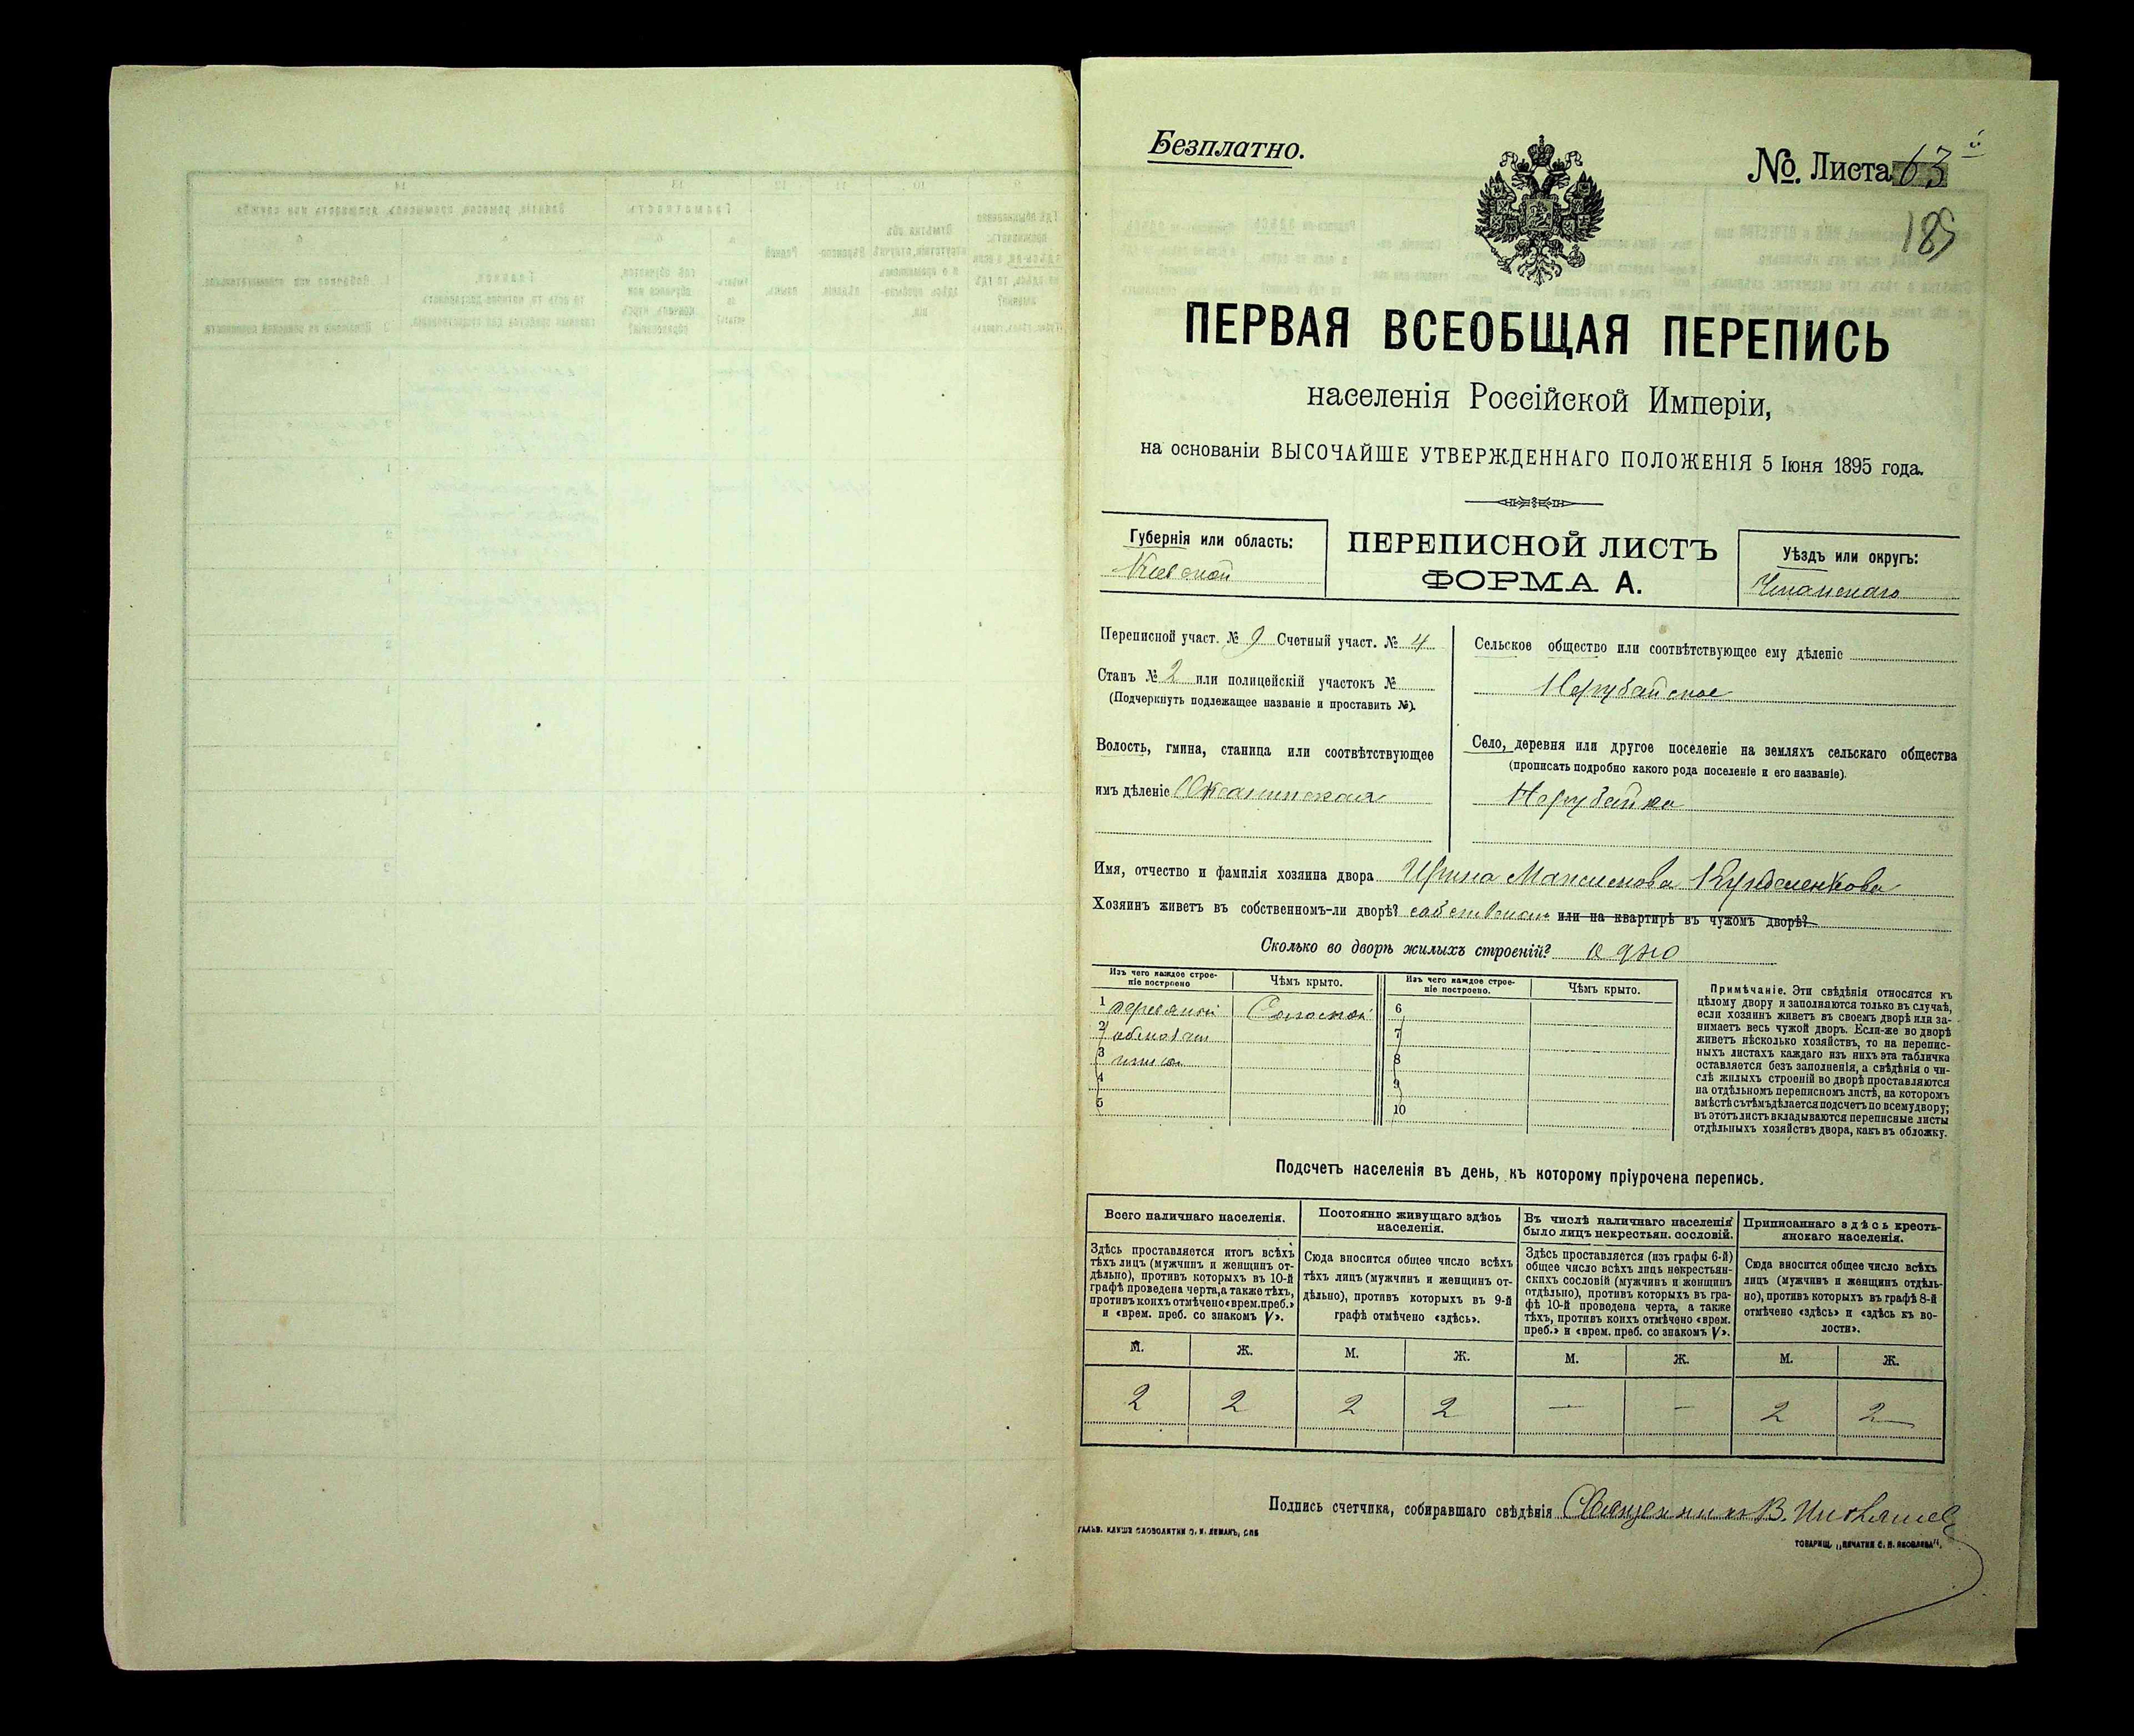 Безплатно.
№. Листа 63
189
ПЕРВАЯ ВСЕОБЩАЯ ПЕРЕПИСЬ
населенія Россійской Имперіи,
на основаніи ВЫСОЧАЙШЕ УТВЕРЖДЕННАГО ПОЛОЖЕНІЯ 5 Іюня 1895 года.
Губернія или область:
Кіевской
ПЕРЕПИСНОЙ ЛИСТЪ
ФОРМА А.
Уѣздъ или округъ:
Уманскаго
Переписной участ. № 9 Счетный участ. № 4
Станъ № 2 или полицейскій участокъ №
(Подчеркнуть подлежащее названіе и проставить №).
Волость, гмина, станица или соотвѣтствующее
имъ дѣленіе Оксанинская
Сельское общество или соотвѣтствующее ему дѣленіе
Нерубайское
Село, деревня или другое поселеніе на земляхъ сельскаго общества
(прописать подробно какого рода поселеніе и его названіе).
Нерубайка
Имя, отчество и фамилія хозяина двора Ирина Максимова
Хозяинъ живетъ въ собственномъ-ли дворѣ? или на квартирѣ въ чужомъ дворѣ?
Сколько во дворѣ жилыхъ строеній? одно
Изъ чего каждое строе-
ніе построено
Чѣмъ крыто.
Изъ чего каждое строе-
ніе построено.
Чѣмъ крыто.
1 Соломой
2
3
4
5
6
7
8
9
10
Примѣчаніе. Эти свѣдѣнія относятся къ
цѣлому двору и заполняются только въ случаѣ,
если хозяинъ живетъ въ своемъ дворѣ или за-
нимаетъ весь чужой дворъ. Если-же во дворѣ
живетъ нѣсколько хозяйствъ, то на перепис-
ныхъ листахъ каждаго изъ нихъ эта табличка
оставляется безъ заполненія, а свѣдѣнія о чи-
слѣ жилыхъ строеній во дворѣ проставляются
на отдѣльномъ переписномъ листѣ, на которомъ
вмѣстѣ съ тѣмъ дѣлается подсчетъ по всему двору;
въ этотъ листъ вкладываются переписные листы
отдѣльныхъ хозяйствъ двора, какъ въ обложку.
Подсчетъ населенія въ день, къ которому пріурочена перепись.
Всего наличнаго населенія.
Здѣсь проставляется итогъ всѣхъ
тѣхъ лицъ (мужчинъ и женщинъ от-
дѣльно), противъ которыхъ въ 10-й
графѣ проведена черта, а также тѣхъ,
противъ коихъ отмѣчено «врем. преб.»
и «врем. преб. со знакомъ V».
Постоянно живущаго здѣсь
населенія.
Сюда вносится общее число всѣхъ
тѣхъ лицъ (мужчинъ и женщинъ от-
дѣльно), противъ которыхъ въ 9-й
графѣ отмѣчено «здѣсь».
Въ числѣ наличнаго населенія
было лицъ некрестьян. сословій.
Здѣсь проставляется (изъ графы 6-й)
общее число всѣхъ лицъ некрестьян-
скихъ сословій (мужчинъ и женщинъ
отдѣльно), противъ которыхъ въ гра-
фѣ 10-й проведена черта, а также
тѣхъ, противъ коихъ отмѣчено «врем.
преб.» и «врем. преб. со знакомъ V».
Приписаннаго здѣсь кресть-
янскаго населенія.
Сюда вносится общее число всѣхъ
лицъ (мужчинъ и женщинъ отдѣль-
но), противъ которыхъ въ графѣ 8-й
отмѣчено «здѣсь» и «здѣсь къ во-
лости».
М. Ж. М. Ж. М. Ж. М. Ж.
2 2 2 2 — — 2 2
Подпись счетчика, собиравшаго свѣдѣнія Священникъ В.
ГАЛЬВ. КЛИШЕ СЛОВОЛИТНИ О. И. ЛЕМАНЪ, СПБ
ТОВАРИЩ. „ПЕЧАТНЯ С. П. ЯКОВЛЕВА“.